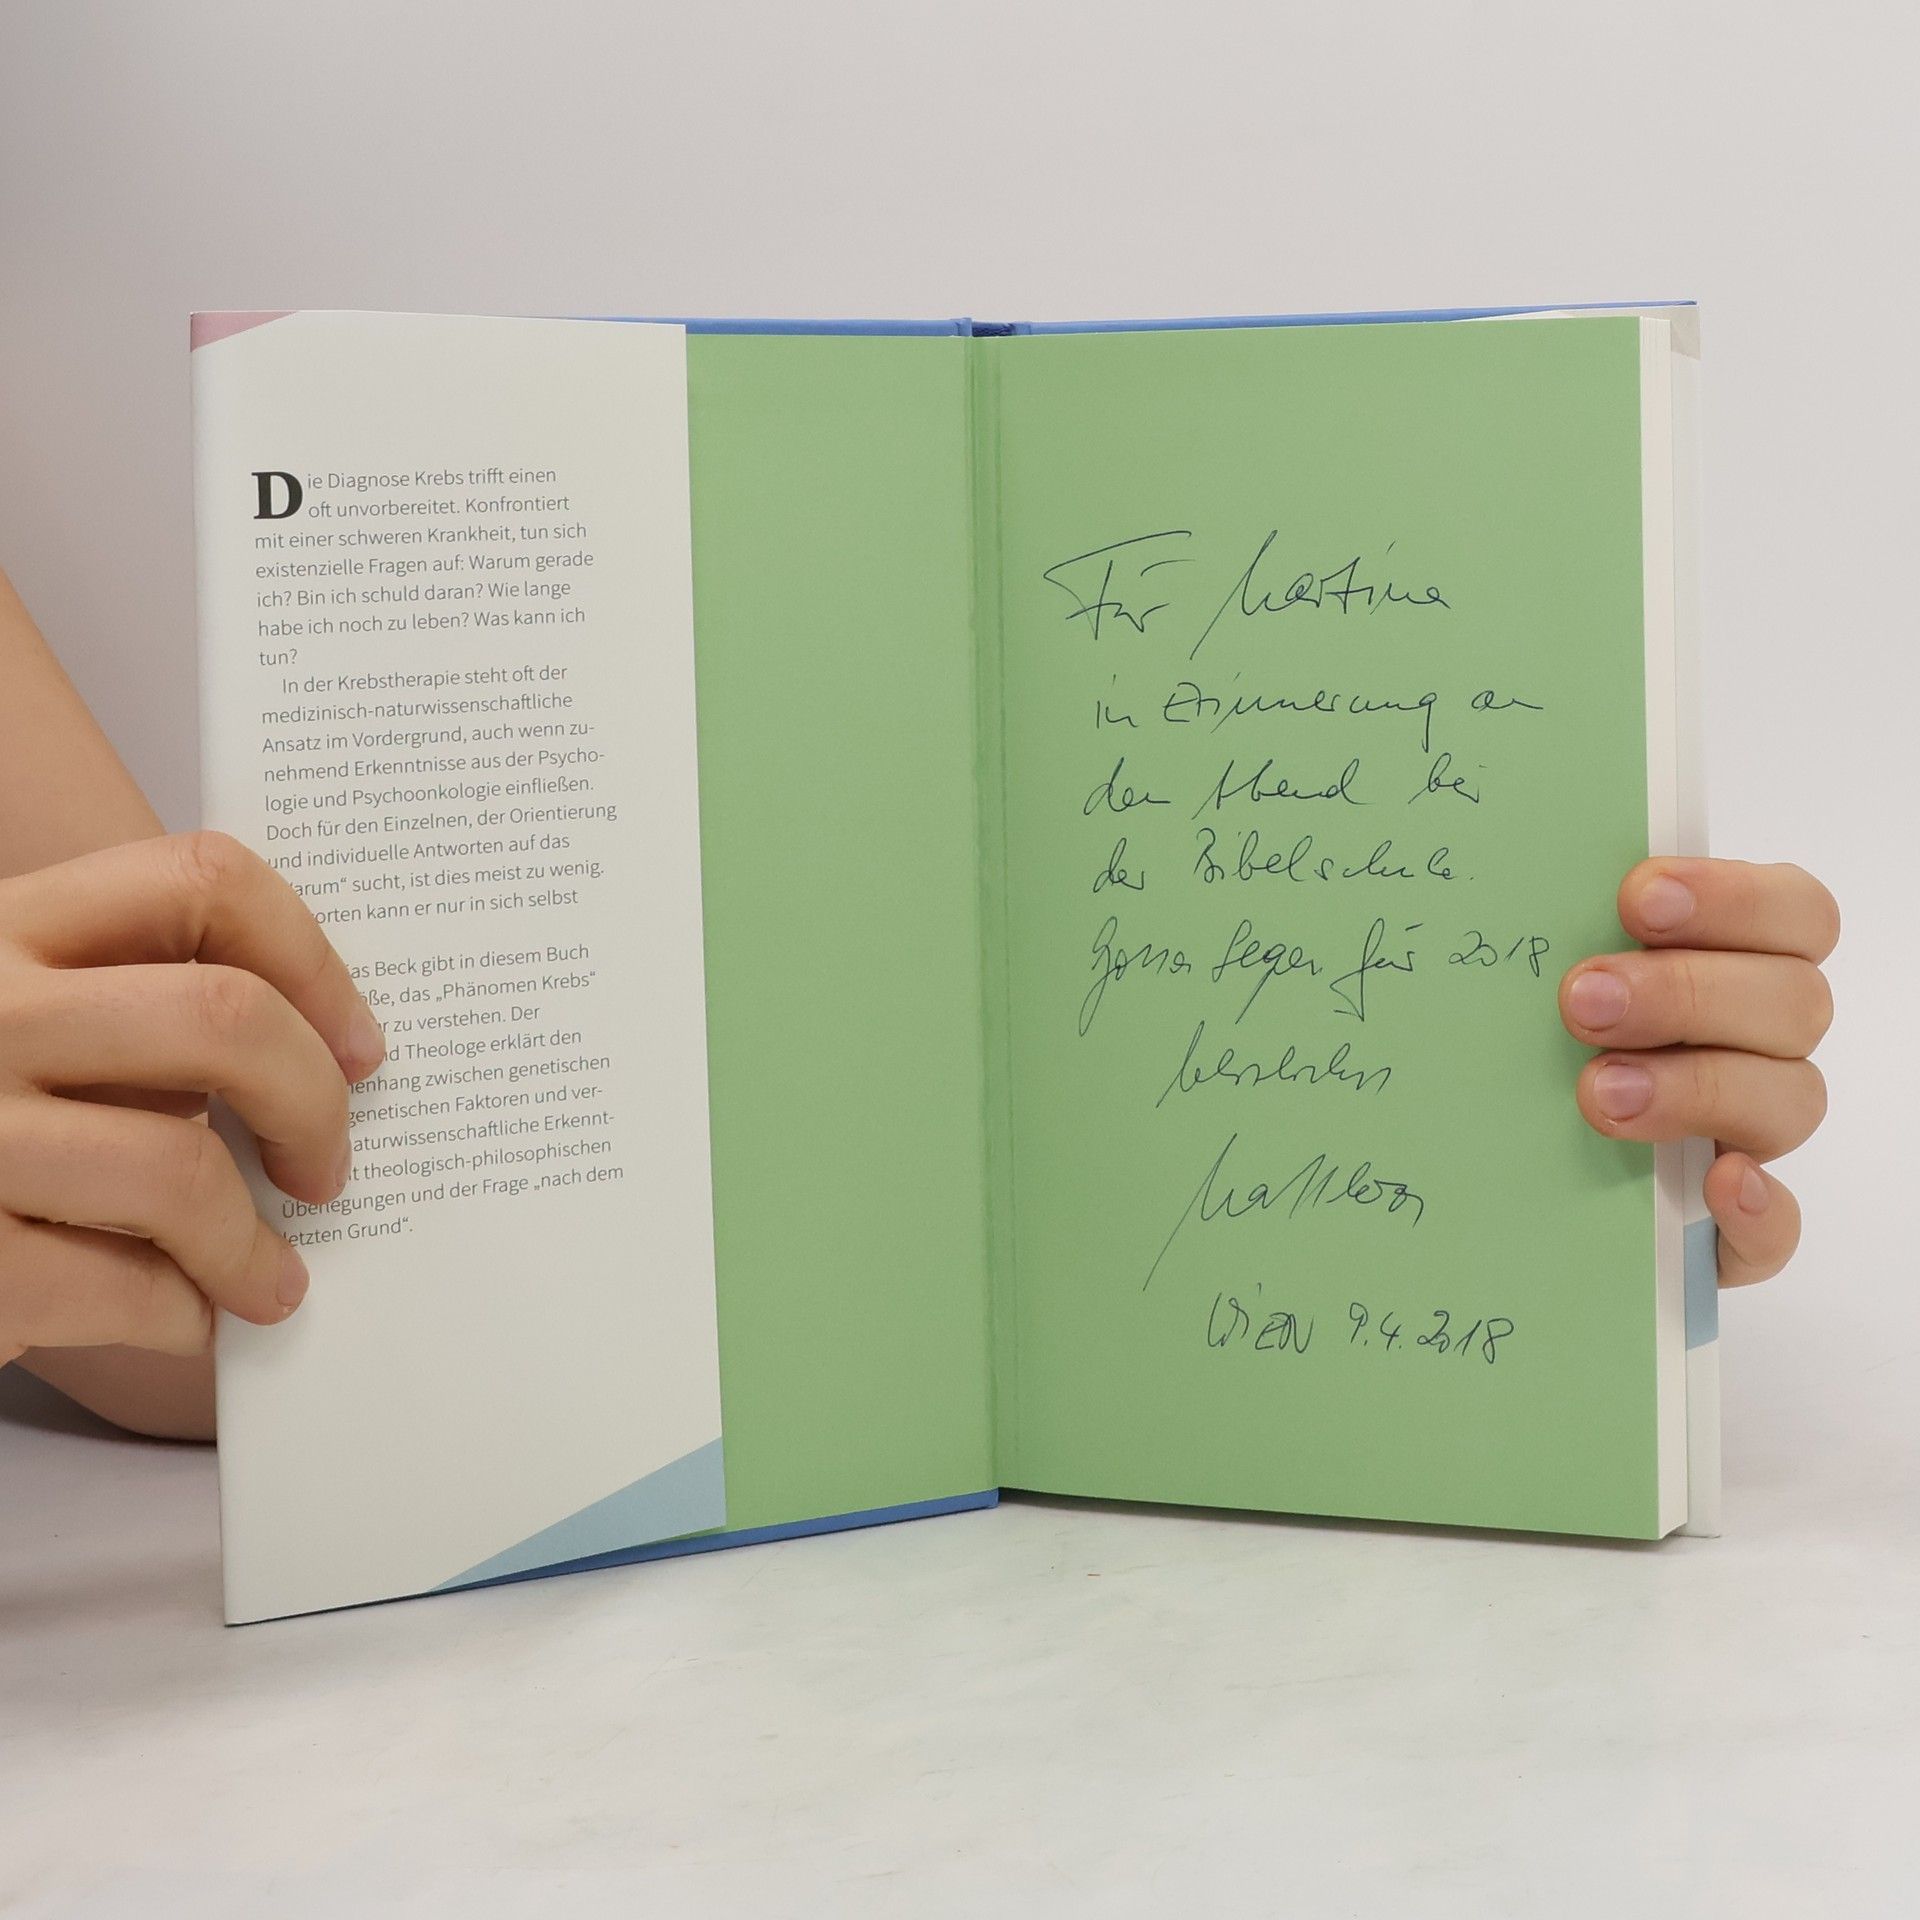 Die Diagnose Krebs trifft einen
oft unvorbereitet. Konfrontiert
mit einer schweren Krankheit, tun sich
existenzielle Fragen auf: Warum gerade
ich? Bin ich schuld daran? Wie lange
habe ich noch zu leben? Was kann ich
tun?
In der Krebstherapie steht oft der
medizinisch-naturwissenschaftliche
Ansatz im Vordergrund, auch wenn zu-
nehmend Erkenntnisse aus der Psycho-
logie und Psychoonkologie einfließen.
Doch für den Einzelnen, der Orientierung
und individuelle Antworten auf das
arum“ sucht, ist dies meist zu wenig.
orten kann er nur in sich selbst
as Beck gibt in diesem Buch
öße, das „Phänomen Krebs“
r zu verstehen. Der
d Theologe erklärt den
enhang zwischen genetischen
genetischen Faktoren und ver-
aturwissenschaftliche Erkennt-
t theologisch-philosophischen
Überlegungen und der Frage „nach dem
letzten Grund“.
Für Martina
in Erinnerung an
den Abend bei
der Bibelschule.
Gottes Segen für 2018
WIEN 9.4.2018